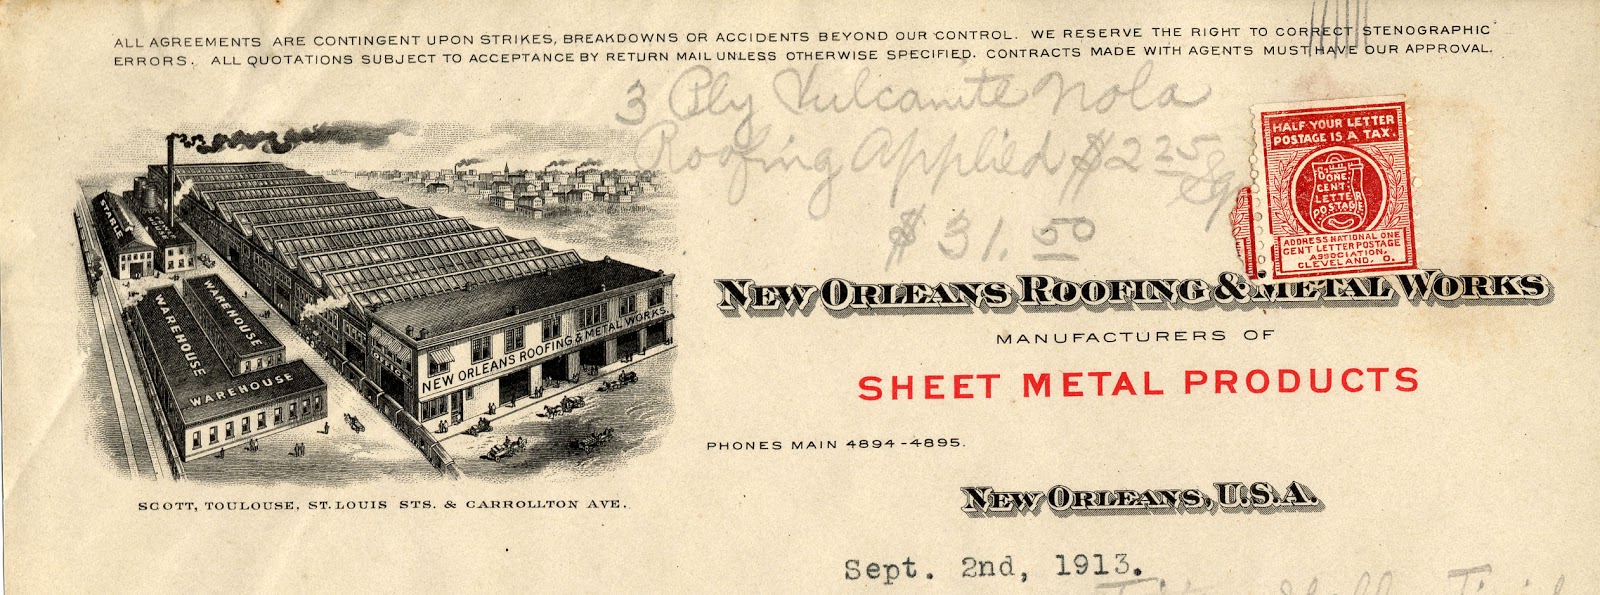 ALL AGREEMENTS ARE CONTINGENT UPON STRIKES, BREAKDOWNS OR ACCIDENTS BEYOND OUR CONTROL. WE RESERVE THE RIGHT TO CORRECT STENOGRAPHIC
ERRORS. ALL QUOTATIONS SUBJECT TO ACCEPTANCE BY RETURN MAIL UNLESS OTHERWISE SPECIFIED. CONTRACTS MADE WITH AGENTS MUST HAVE OUR APPROVAL.
3 Ply Vulcanite Nola
Roofing Applied $2 25 Sq
$31.50
HALF YOUR LETTER
POSTAGE IS A TAX.
ONE
CENT
LETTER
POSTAGE
ADDRESS NATIONAL ONE
CENT LETTER POSTAGE
ASSOCIATION,
CLEVELAND, O.
STABLE
WAREHOUSE
WAREHOUSE
WAREHOUSE
OFFICE
NEW ORLEANS ROOFING & METAL WORKS.
SCOTT, TOULOUSE, ST. LOUIS STS. & CARROLLTON AVE.
NEW ORLEANS ROOFING & METAL WORKS
MANUFACTURERS OF
SHEET METAL PRODUCTS
PHONES MAIN 4894-4895.
NEW ORLEANS, U.S.A.
Sept. 2nd, 1913.